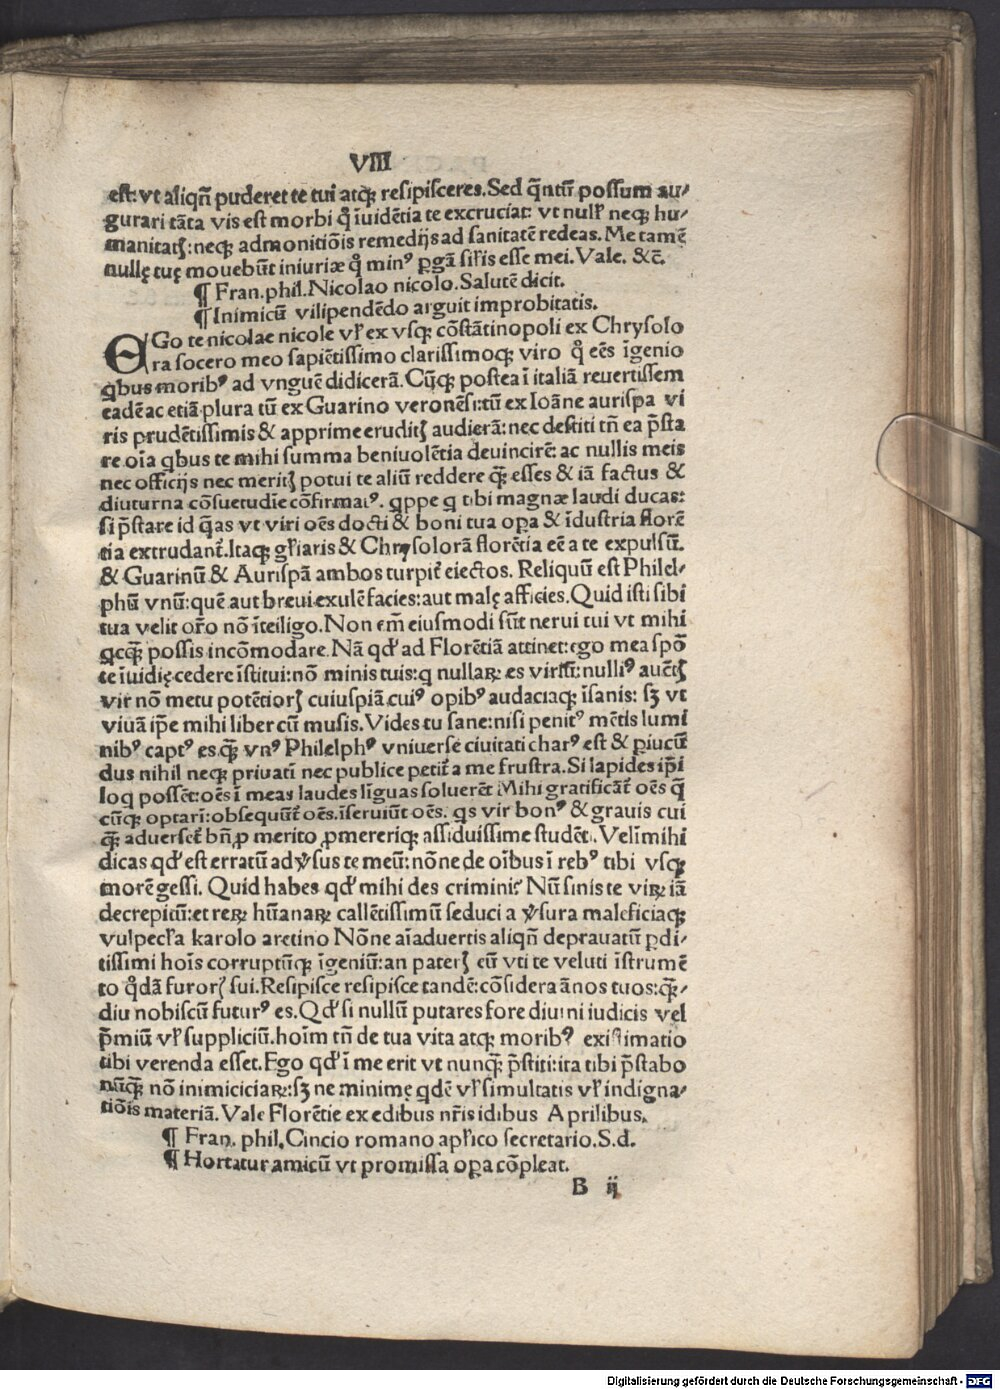 VIII
est: vt aliqñ puderet te tui atqꝫ resipisceres. Sed q̃ntũ possum au⸗
gurari tãta vis est morbi q̊ ĩuidẽtia te excruciat: vt nulꝉ neqꝫ hu⸗
manitatꝭ: neqꝫ admonitiõis remedijs ad sanitatẽ redeas. Me tamẽ
nullę tuę mouebũt iniuriæ q̊ minꝰ ꝑgã siꝉis esse mei. Vale. &c̃.
¶ Fran. phil. Nicolao nicolo. Salutẽ dicit.
¶ Inimicũ vilipendẽdo arguit improbitatis.
EGo te nicolae nicole vꝉ ex vsqꝫ cõstãtinopoli ex Chrysolo
ra socero meo sapiẽtissimo clarissimoqꝫ viro q̊ eẽs ĩgenio
ꝗbus moribꝰ ad vnguẽ didicerã. Cũqꝫ postea ĩ italiã reuertissem
eadẽ ac etiã plura tũ ex Guarino veronẽsi: tũ ex Ioãne aurispa vi
ris prudẽtissimis & apprime eruditꝭ audierã: nec destiti tñ ea p̃sta
re oĩa ꝗbus te mihi summa beniuolẽtia deuincirẽ: ac nullis meis
nec officijs nec meritꝭ potui te aliũ reddere q̃ꝫ esses & iã factus &
diuturna cõsuetudĩe cõfirmatꝰ. ꝗppe ꝗ tibi magnæ laudi ducas:
si p̃stare id q̃as vt viri oẽs docti & boni tua oꝑa & ĩdustria florẽ
tia extrudant̃. Itaqꝫ gꝉiaris & Chrysolorã florẽtia eẽ a te expulsũ.
& Guarinũ & Aurispã ambos turpit̃ eiectos. Reliquũ est Philel⸗
phũ vnũ: quẽ aut breui exulẽ facies: aut malę afficies. Quid isti sibi
tua velit or̃o nõ ĩtelligo. Non em̃ eiusmodi sũt nerui tui vt mihi
ꝗcq̃ꝫ possis incõmodare. Nã qđ ad Florẽtiã attinet: ego mea spõ
te ĩuidię cedere ĩstitui: nõ minis tuis: ꝗ nullaꝝ es viriũ: nulliꝰ auc̃tꝭ
vir nõ metu potẽtiorꝭ cuiuspiã cuiꝰ opibꝰ audaciaqꝫ ĩsanis: sꝫ vt
viuã ip̃e mihi liber cũ musis. Vides tu sane: nisi penitꝰ mẽtis lumi
nibꝰ captꝰ es. q̃ꝫ vnꝰ Philelphꝰ vniuerse ciuitati charꝰ est & ꝑiucũ
dus nihil neqꝫ priuatĩ nec publice petit̃ a me frustra. Si lapides ip̃i
loq possẽt: oẽs ĩ meas laudes lĩguas soluerẽt Mihi gratificãt̃ oẽs q̃
cũqꝫ optarĩ: obsequũt̃ oẽs. ĩseruiũt oẽs. ꝗs vir bonꝰ & grauis cui
q̃ꝫ aduerset̃ bñ ꝓ merito ꝓmereriqꝫ assiduissime studẽt. Velĩ mihi
dicas qđ est erratũ adꝟsus te meũ: nõne de oĩbus ĩ rebꝰ tibi vsqꝫ
morẽ gessi. Quid habes qđ mihi des crimini? Nũ sinis te viꝝ iã
decrepitũ: et reꝝ hũanaꝝ callẽtissimũ seduci a ꝟsura maleficiaqꝫ
vulpecꝉa karolo aretino Nõne aĩaduertis aliqñ deprauatũ ꝑdi⸗
tissimi hoĩs corruptũqꝫ ĩgeniũ: an paterꝭ eũ vti te veluti ĩstrumẽ
to q̊dã furorꝭ sui. Resipisce resipisce tandẽ: cõsidera ãnos tuos: q̃ꝫ⸗
diu nobiscũ futurꝰ es. Qđ si nullũ putares fore diuini iudicis vel
p̃miũ vꝉ suppliciũ. hoĩm tñ de tua vita atqꝫ moribꝰ existimatio
tibi verenda esset. Ego qđ ĩ me erit vt nunq̃ꝫ p̃stiti: ita tibi p̃stabo
nũq̃ꝫ nõ inimiciciaꝝ: sꝫ ne minimę qdẽ vꝉ simultatis vꝉ indigna⸗
tiõis materiã. Vale Florẽtie ex edibus nr̃is idibus Aprilibus.
¶ Fran. phil. Cincio romano apꝉico secretario. S. d.
¶ Hortatur amicũ vt promissa oꝑa cõpleat.
B ij
Digitalisierung gefördert durch die Deutsche Forschungsgemeinschaft - DFG